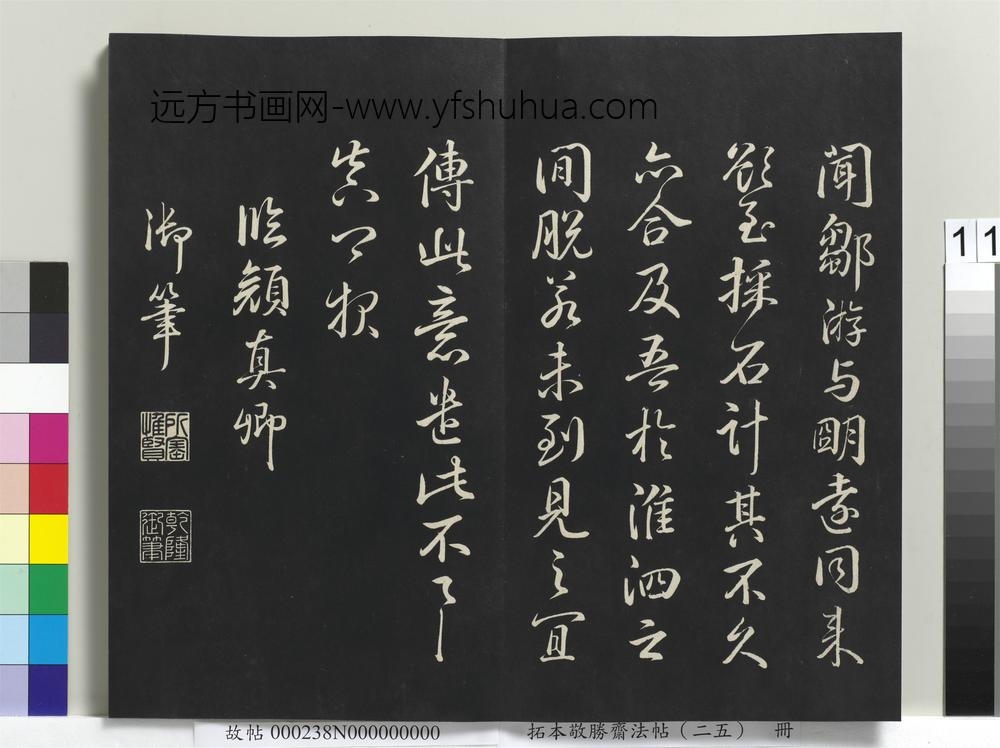 远方书画网-www.yfshuhua.com
聞鄒游与朙遠同来
欲至採石計其不久
亦合及吾於淮泗之
間脫若未到見之宜
傳此意遣此不了
真口報
臨顏真卿
御筆
所寶惟賢
乾隆御筆
11
故帖 000238N000000000
拓本敬勝齋法帖（二五） 冊